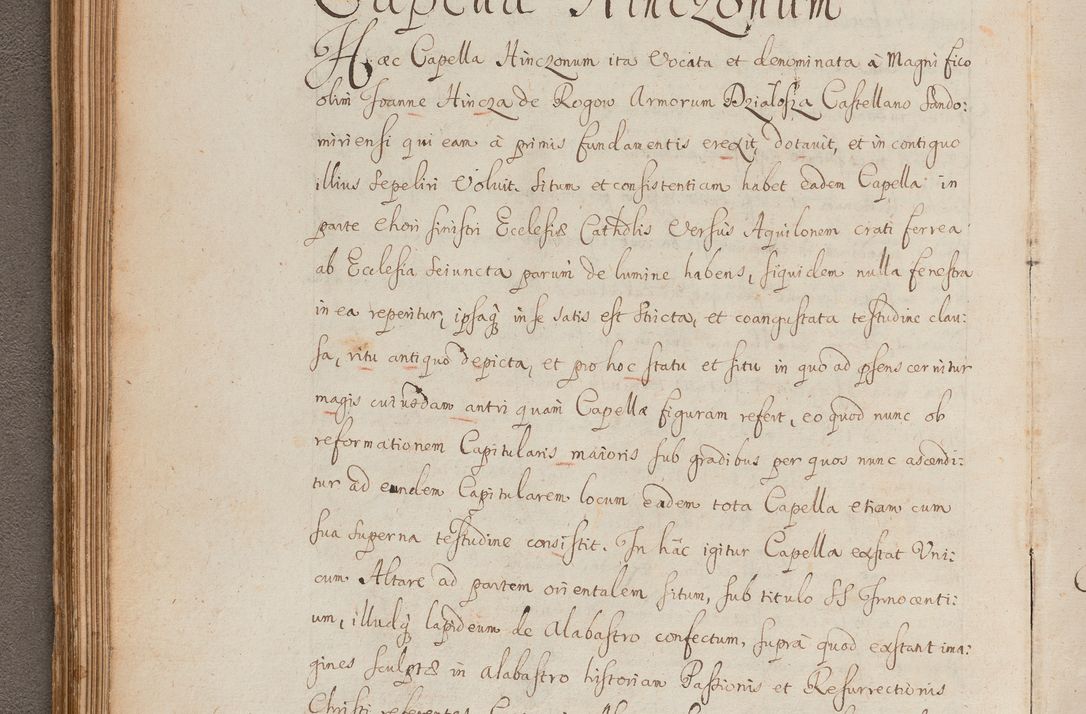 Capella Hinczonum
Hæc Capella Hinczonum ita Vocata et denominata à Magnifico
olim Joanne Hincza de Rogow Armorum Działosza Castellano Sando:
miriensi qui eam à primis fundamentis erexit, dotavit, et in contiguo
illius Sepeliri Voluit. Situm et consistentiam habet eadem Capella in
parte Chori sinistri Ecclesiæ Cathdlis Versus Aquilonem crati ferrea
ab Ecclesia Seiuncta parum de lumine habens, siquidem nulla fenestra
in ea reperitur, ipsaq; in se satis est stricta, et coangustata testudine clau:
sa, ritu antiquo depicta, et pro hoc statu et situ in quo ad psens cernitur
magis cuiusdam antri quam Capellæ figuram refert, eo quod nunc ob
reformationem Capitularis maioris sub gradibus per quos nunc ascendi:
tur ad eundem Capitularem locum eadem tota Capella etiam cum
sua superna testudine consistit. In hâc igitur Capella exstat Uni:
cum Altare ad partem orientalem situm, sub titulo SS Innocenti:
um, illudq; lapideum de Alabastro confectum, supra quod exstant ima:
gines sculptæ in Alabastro historiam Passionis et Resurrectionis
Christi referentes